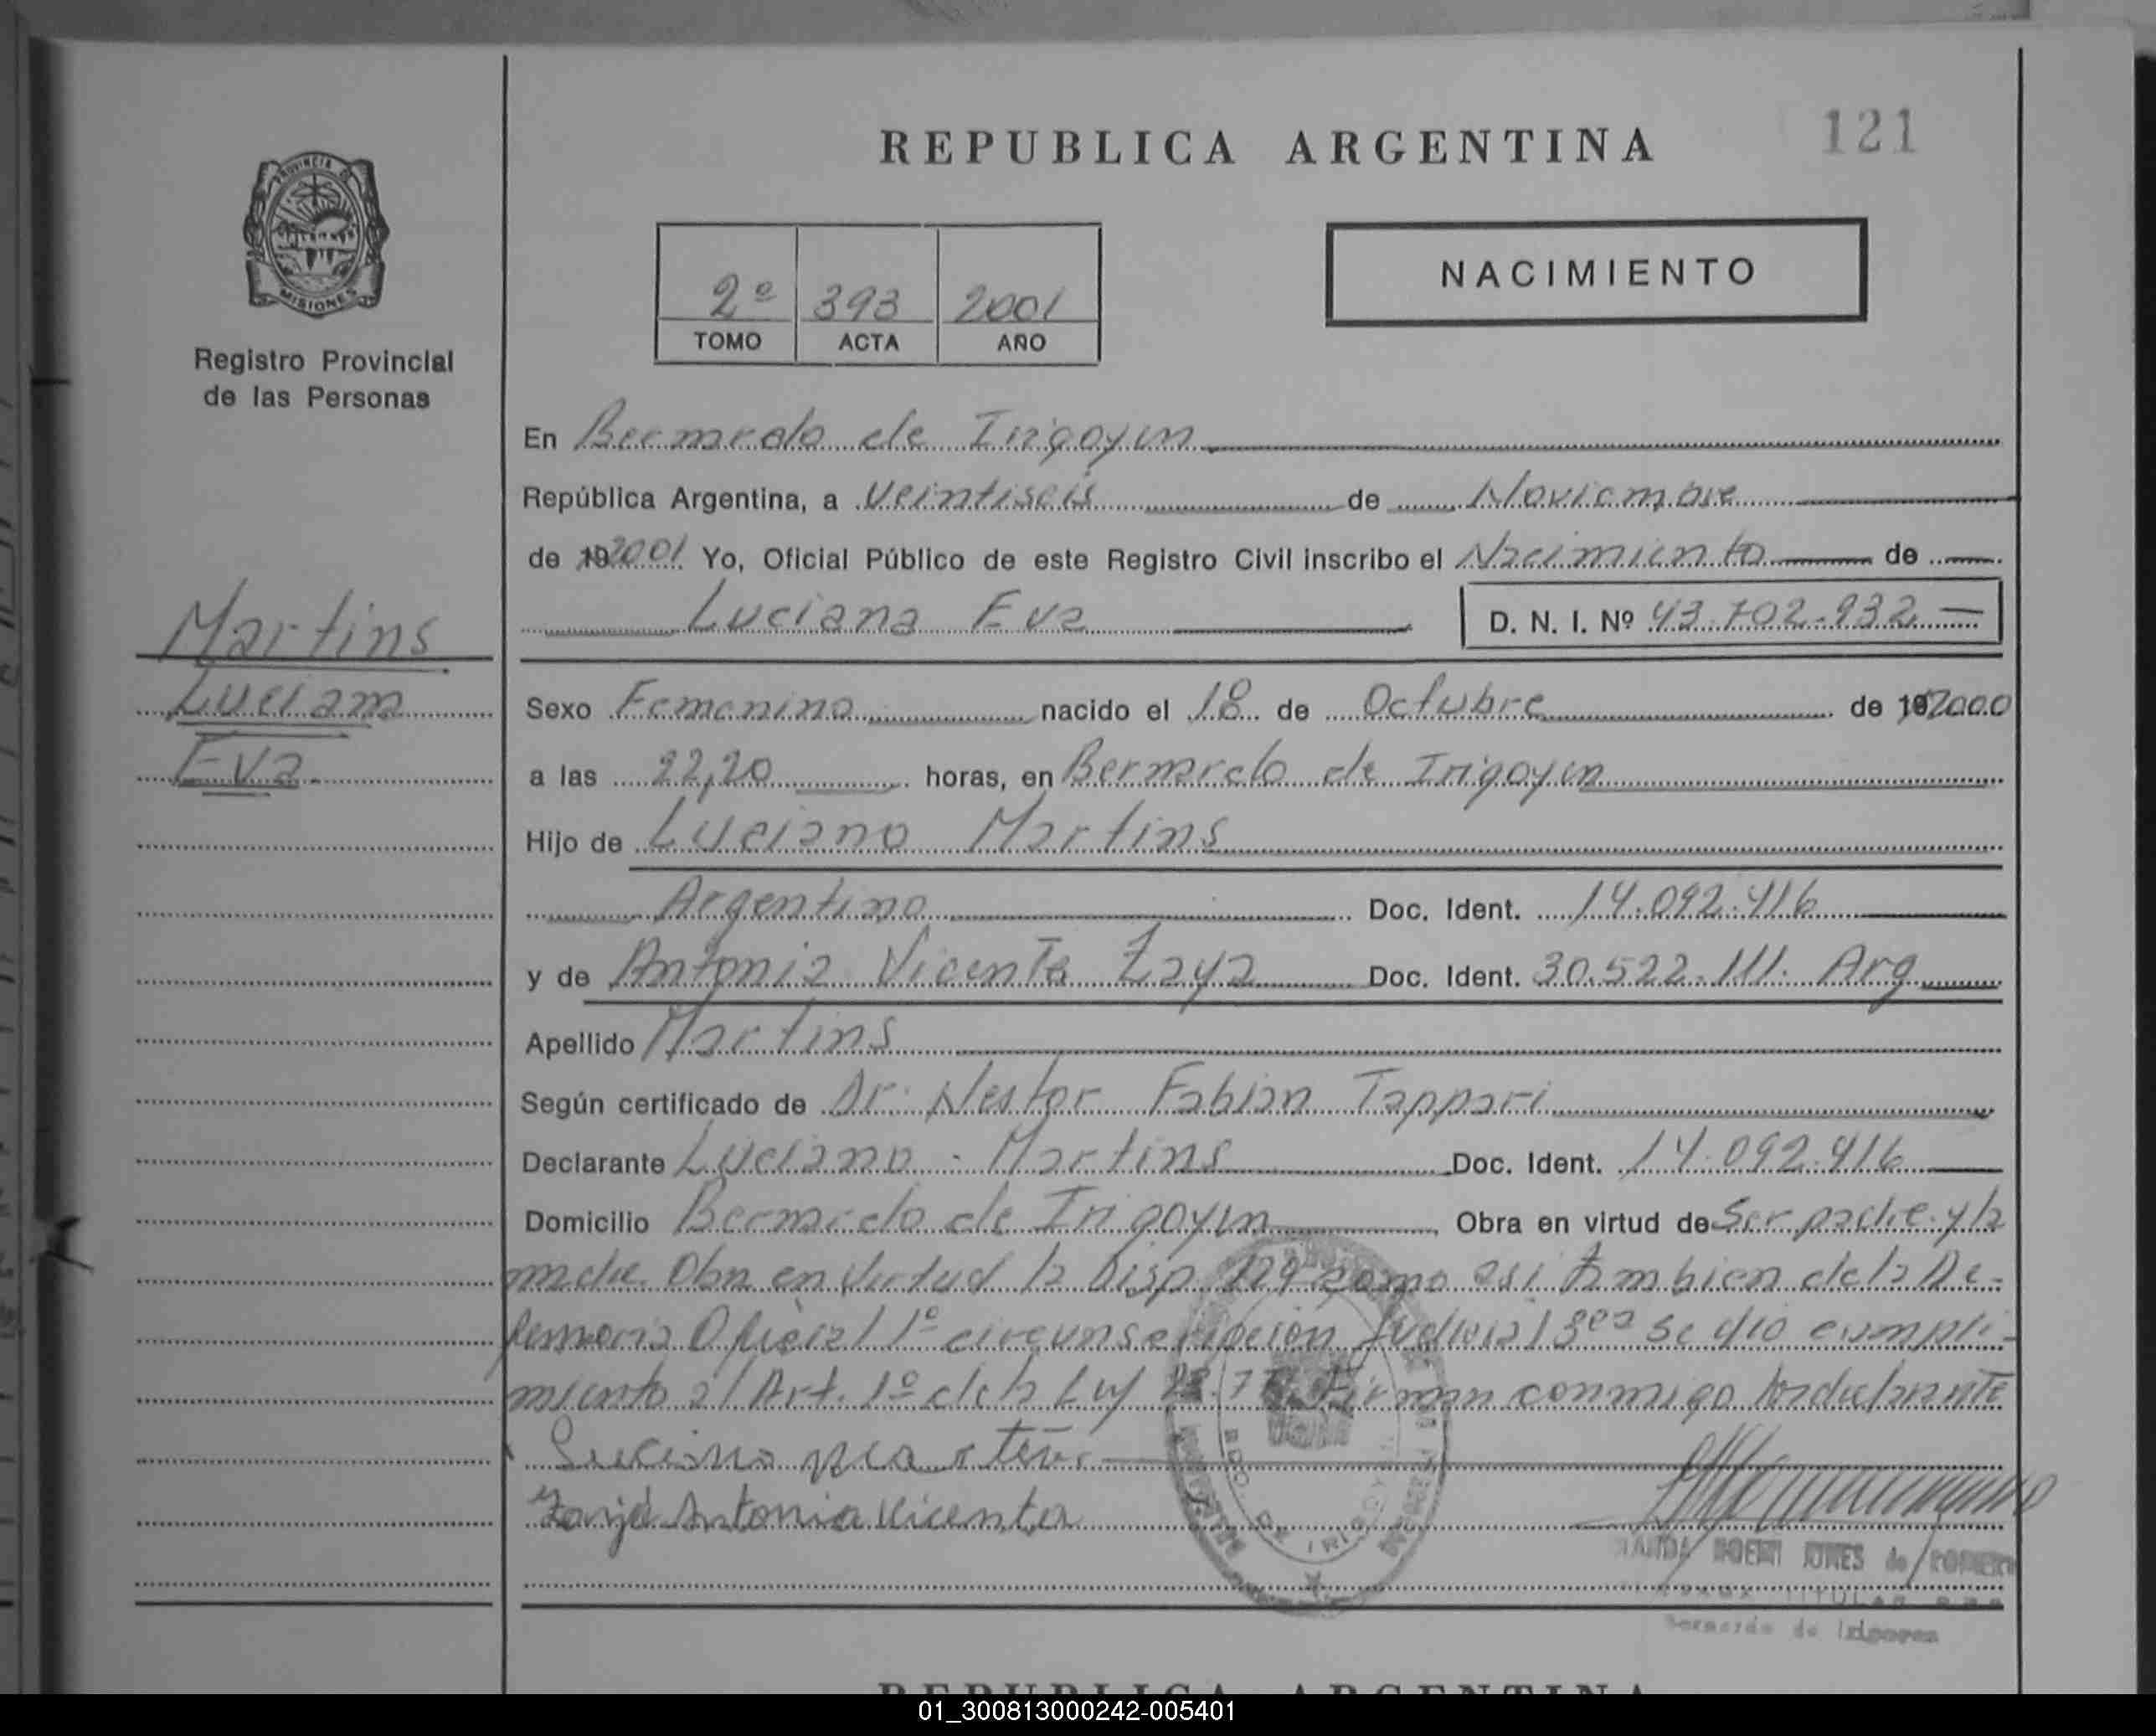 REPUBLICA ARGENTINA
121
PROVINCIA DE
MISIONES
Registro Provincial
de las Personas
2º 393 2001
TOMO ACTA AÑO
NACIMIENTO
Martins
Luciana
Eva
En Bernardo de Irigoyen
República Argentina, a Veintiseis de Noviembre
de 192001 Yo, Oficial Público de este Registro Civil inscribo el Nacimiento de
Luciana Eva D. N. I. Nº 43.702.932
Sexo Femenino nacido el 18 de Octubre de 192000
a las 22,20 horas, en Bernardo de Irigoyen
Hijo de Luciano Martins
Argentino Doc. Ident. 14.092.416
y de Antonia Vicenta Zaya Doc. Ident. 30.522.111. Arg
Apellido Martins
Según certificado de Dr. Nestor Fabian Tappari
Declarante Luciano - Martins Doc. Ident. 14.092.416
Domicilio Bernardo de Irigoyen Obra en virtud de Ser padre y la
madre Obra en virtud la Disp. como asi tambien de la De-
fensoria Oficial 1º circunscripción Judicial 3era se dio cumpli-
miento al Art. 1º de la Ley Firman conmigo
Luciano
Antonia Vicenta
BDO. DE IRIGOYEN
NOEMI de
TITULAR
Bernardo de Irigoyen
REPUBLICA ARGENTINA
01_300813000242-005401